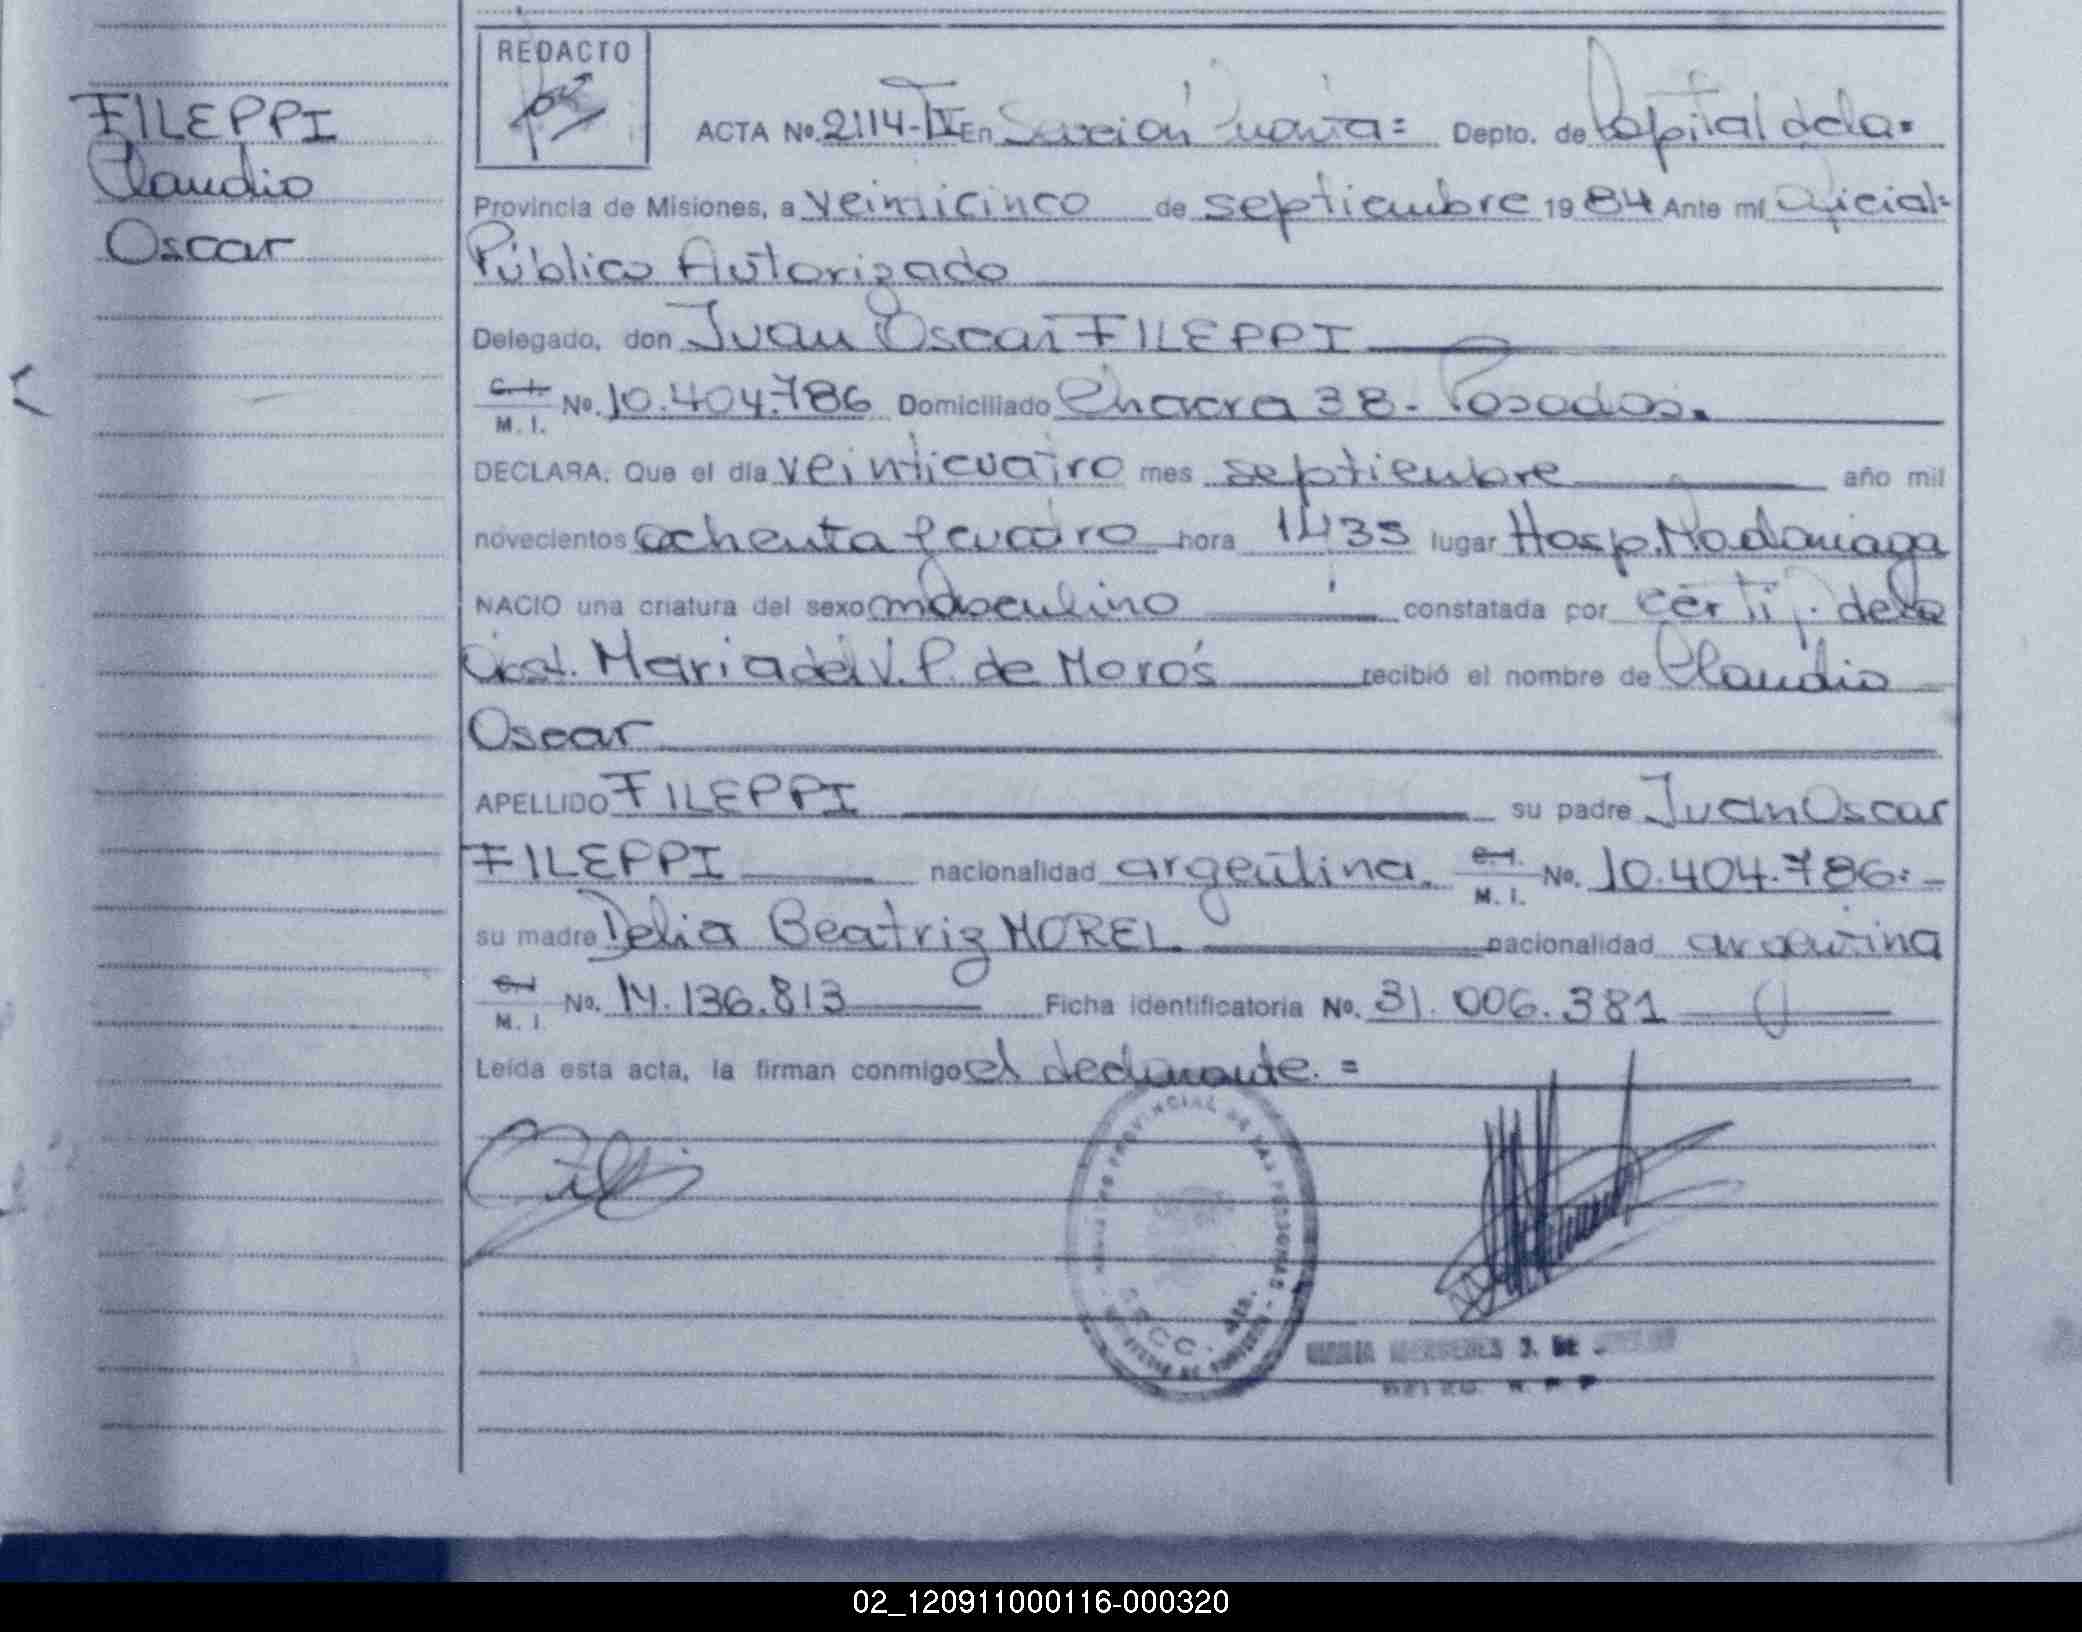 FILEPPI
Claudio
Oscar
REDACTO
ACTA No. 2114-IV En Sección Cuarta = Depto. de Capital de la.
Provincia de Misiones, a veinticinco de septiembre 1984 Ante mí Oficial=
Público Autorizado
Delegado, don Juan Oscar FILEPPI
C. I. M. I. No. 10.404.786 Domiciliado Chacra 38 - Posadas.
DECLARA: Que el día veinticuatro mes septiembre año mil
novecientos ochenta y cuatro hora 1435 lugar Hosp. Madariaga
NACIO una criatura del sexo masculino constatada por certif. de la
Obst. Maria del V. P. de Moros recibió el nombre de Claudio
Oscar
APELLIDO FILEPPI su padre Juan Oscar
FILEPPI nacionalidad argentina. C. I. M. I. No. 10.404.786.-
su madre Delia Beatriz MOREL nacionalidad argentina
C. I. M. I. No. 14.136.813 Ficha identificatoria No. 31.006.381
Leída esta acta, la firman conmigo el declarante. =
PROVINCIAL DE LAS PERSONAS
MERCEDES J. DE
02_120911000116-000320